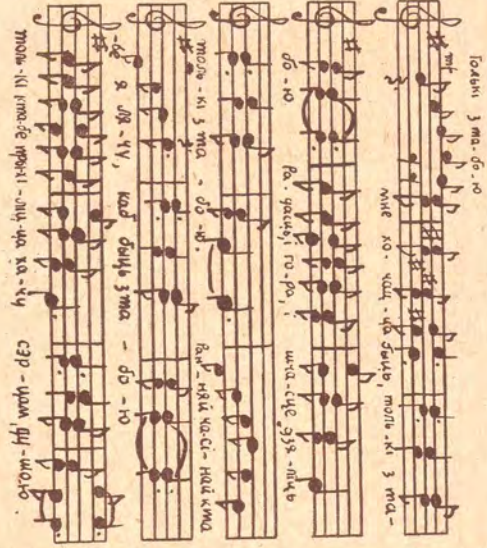 mf
Толькі з та-бо-ю мне хо-чац-ца быць, толь-кі з та-
бо-ю Ра-дасць, і го-ра, і шча-сце дзя-ліць
толь-кі з та-бо-ю. Ран-няй ча-сі-най к та
-бе я ля-чу, каб быць з та-бо-ю
толь-кі к та-бе пры-хі-ліц-ца ха-чу сэр-цам, ду-шо-ю.